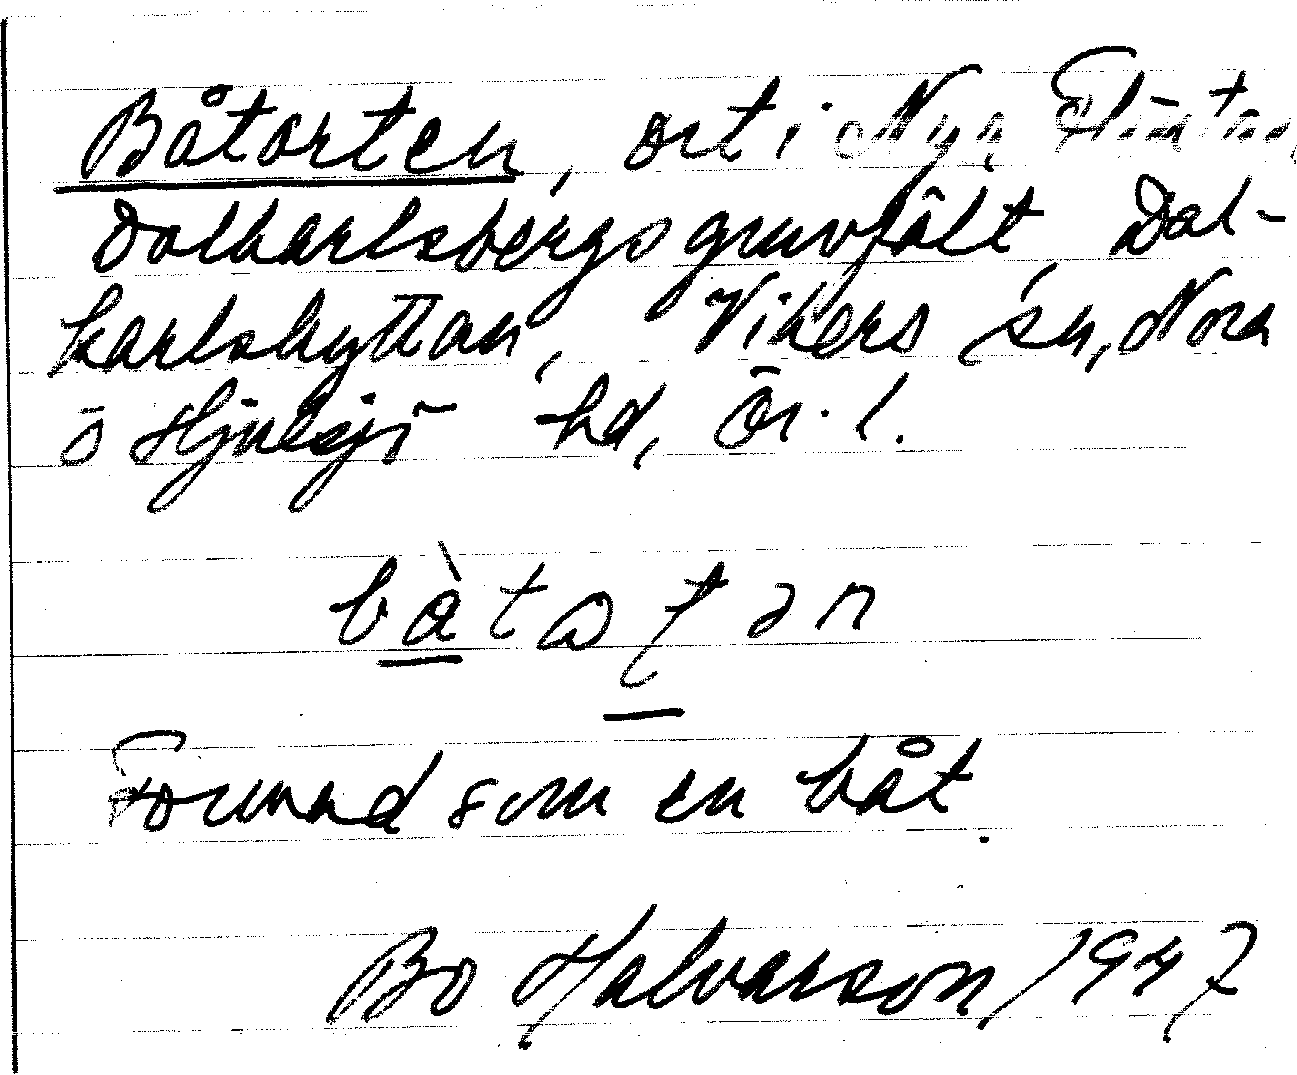 Båtorten, ort i Nya Flintan,
Dalkarlsbergs gruvfält, Dal-
karlshyttan, Vikers sn, Nora
o Hjulsjö hd, Ör. l.
bàtoʈən
Formad som en båt.
Bo Halvarson, 1947